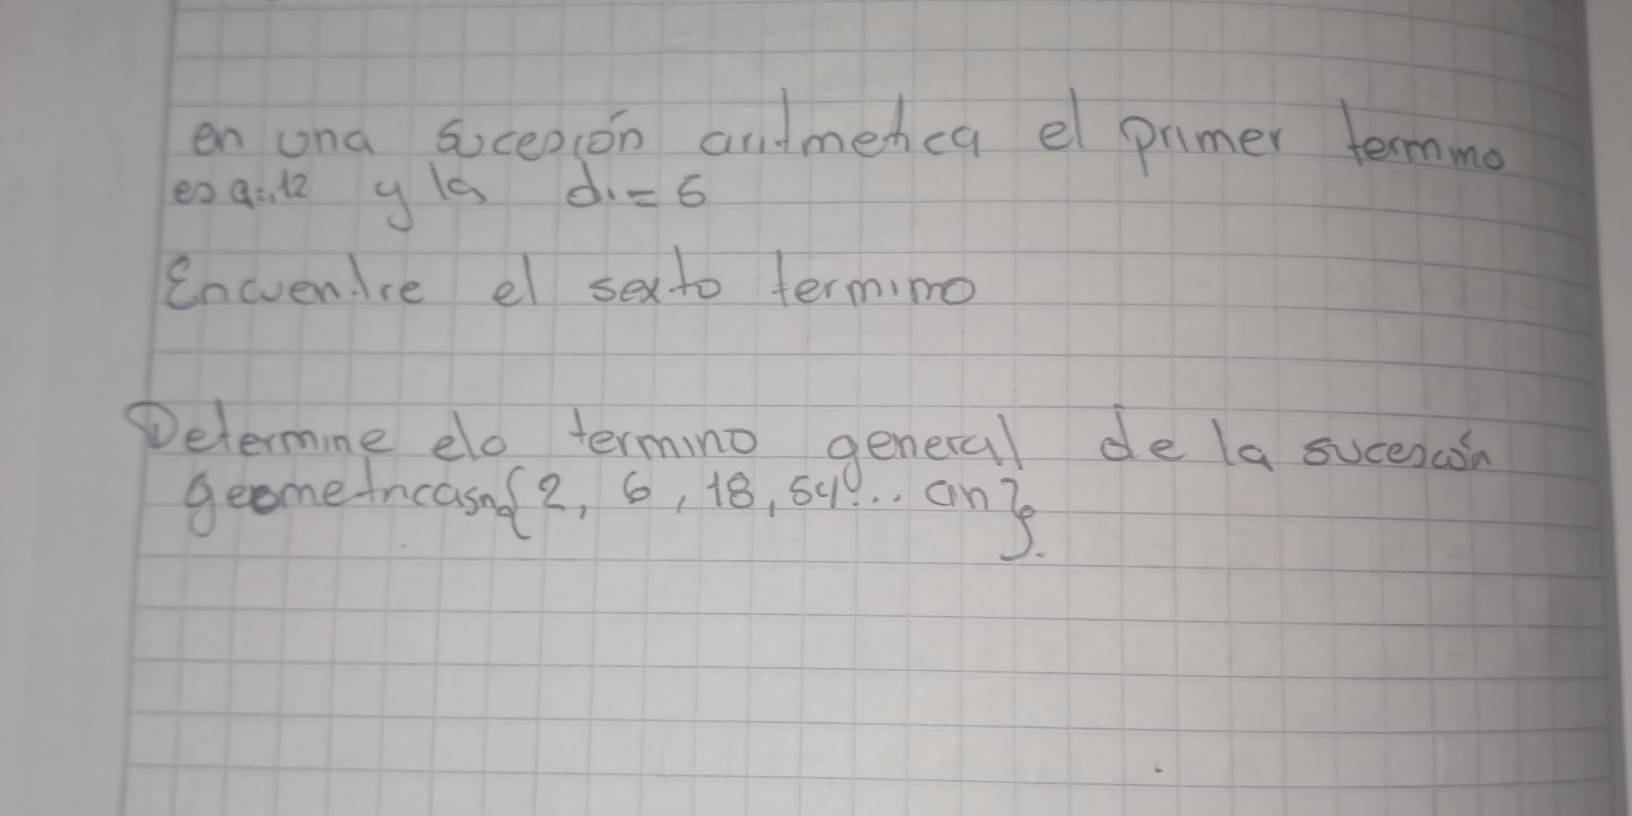 en una sucesión aritmetica el primer termino
es a=12 y la d.=5
Encuentre el sexto termimo
Determine elo termino general de la sucesión
geometricasn{2, 6, 18, 54... an}.